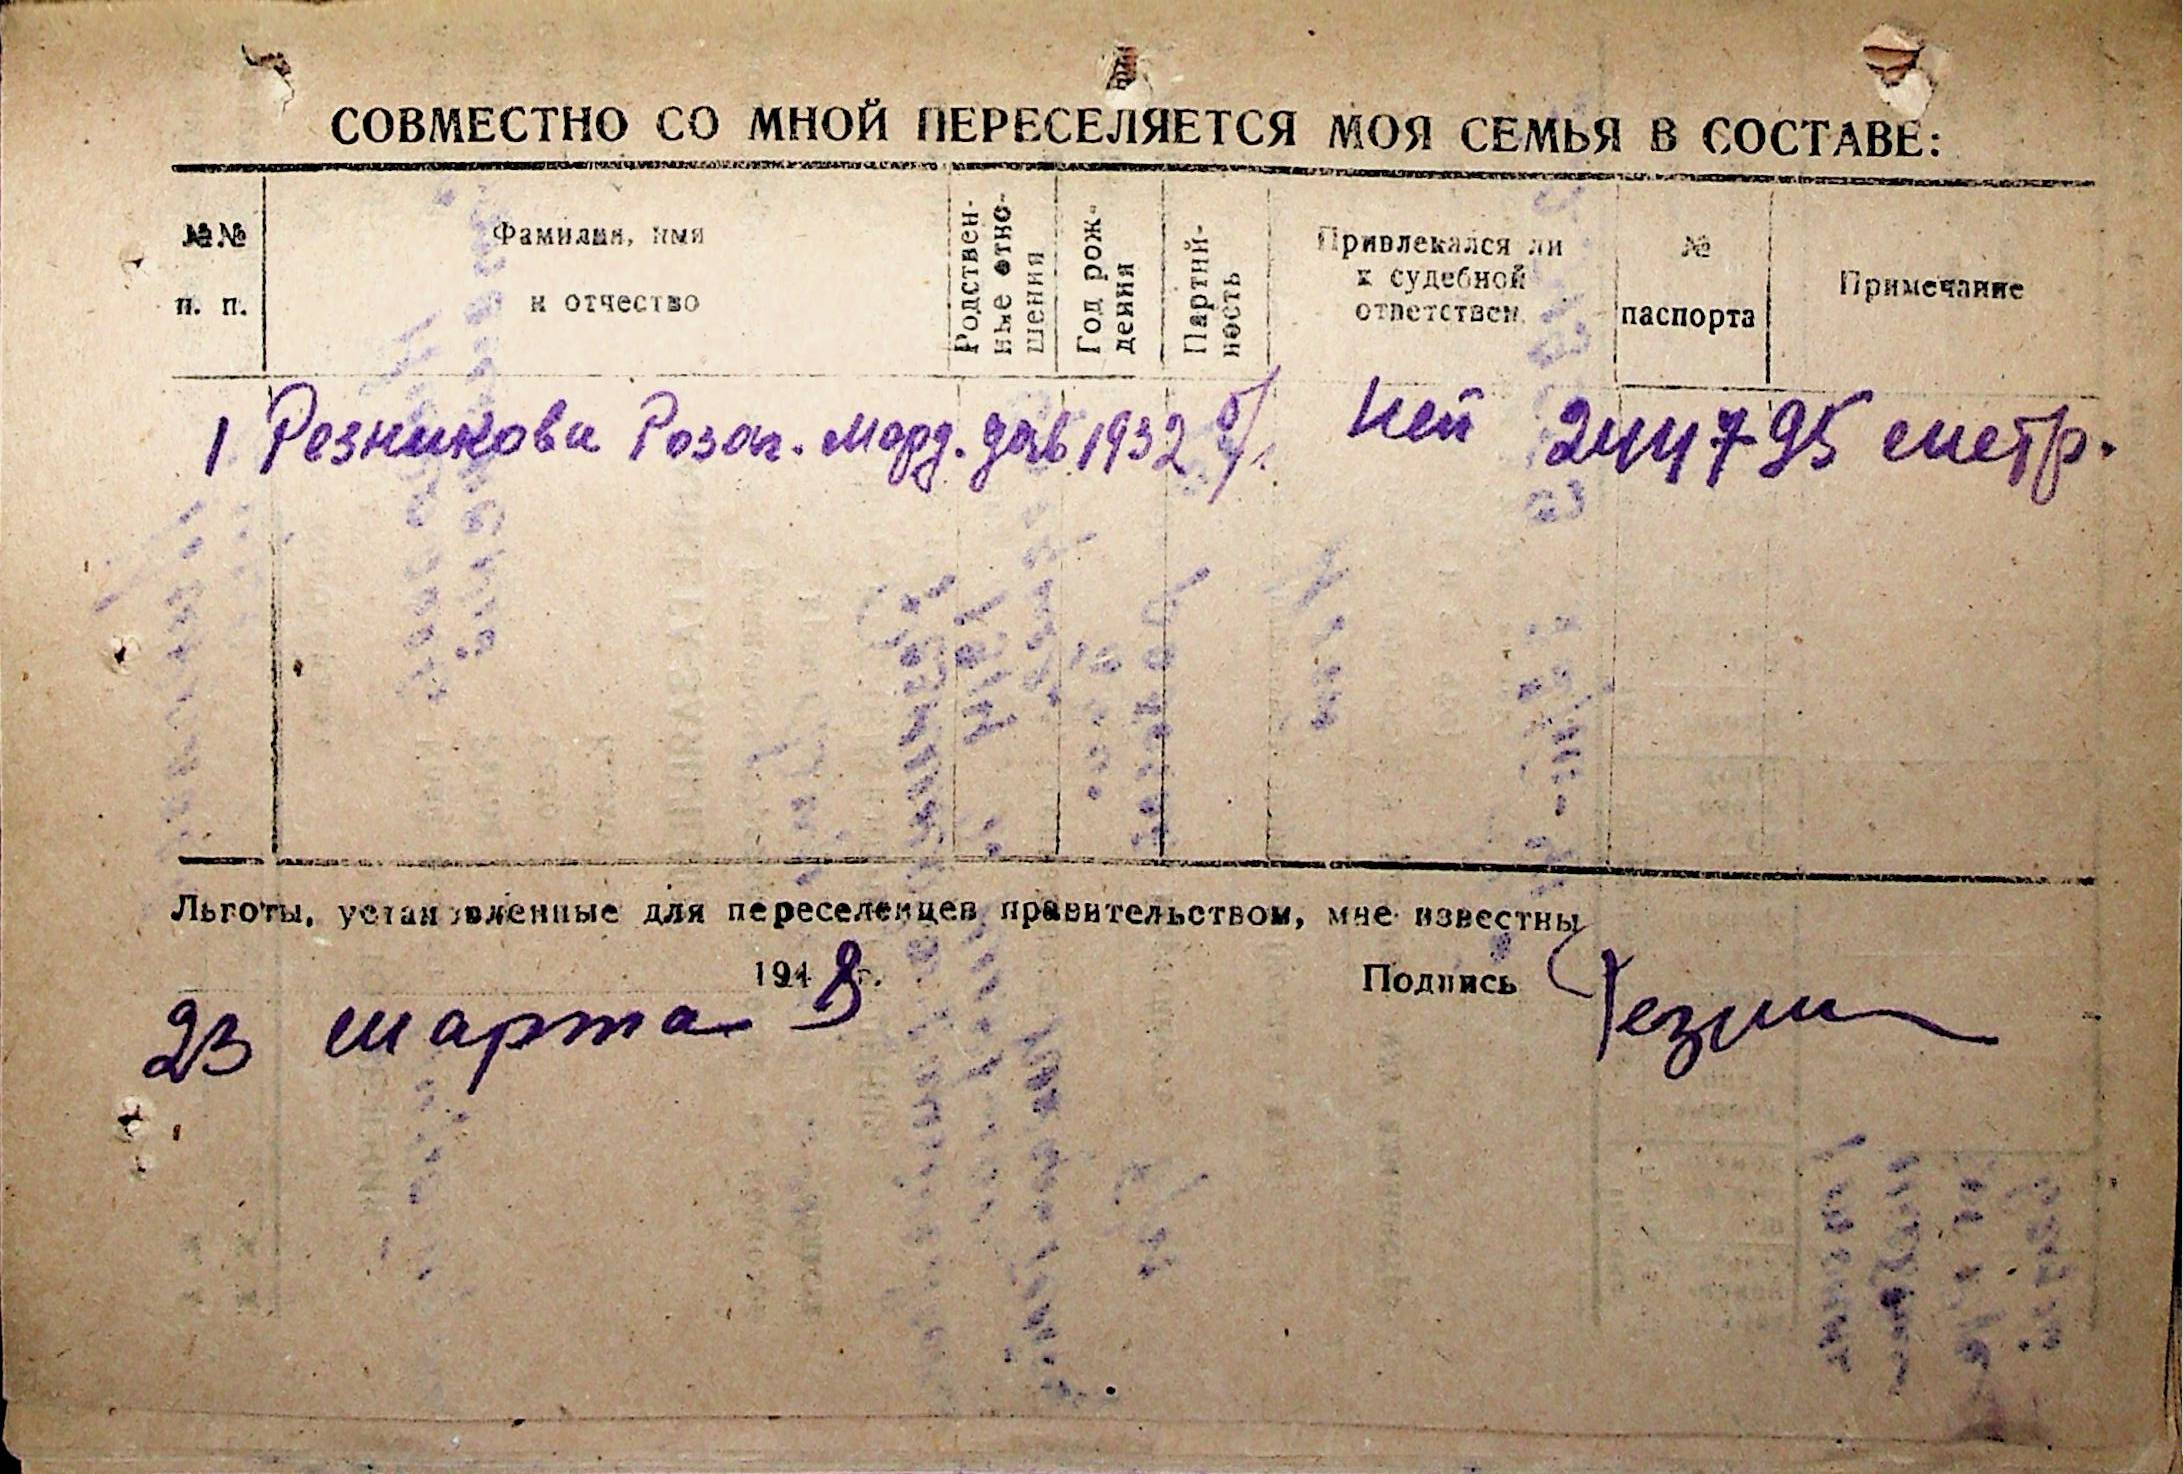 СОВМЕСТНО СО МНОЙ ПЕРЕСЕЛЯЕТСЯ МОЯ СЕМЬЯ В СОСТАВЕ:
№№ п. п.
Фамилия, имя и отчество
Родственные отношения
Год рождения
Партийность
Привлекался ли к судебной ответствен.
№ паспорта
Примечание
1 Резникова Роза. Морд. дочь 1932 б/п. нет 244795 метр.
Льготы, установленные для переселенцев правительством, мне известны
23 марта 1948 г.
Подпись Резни